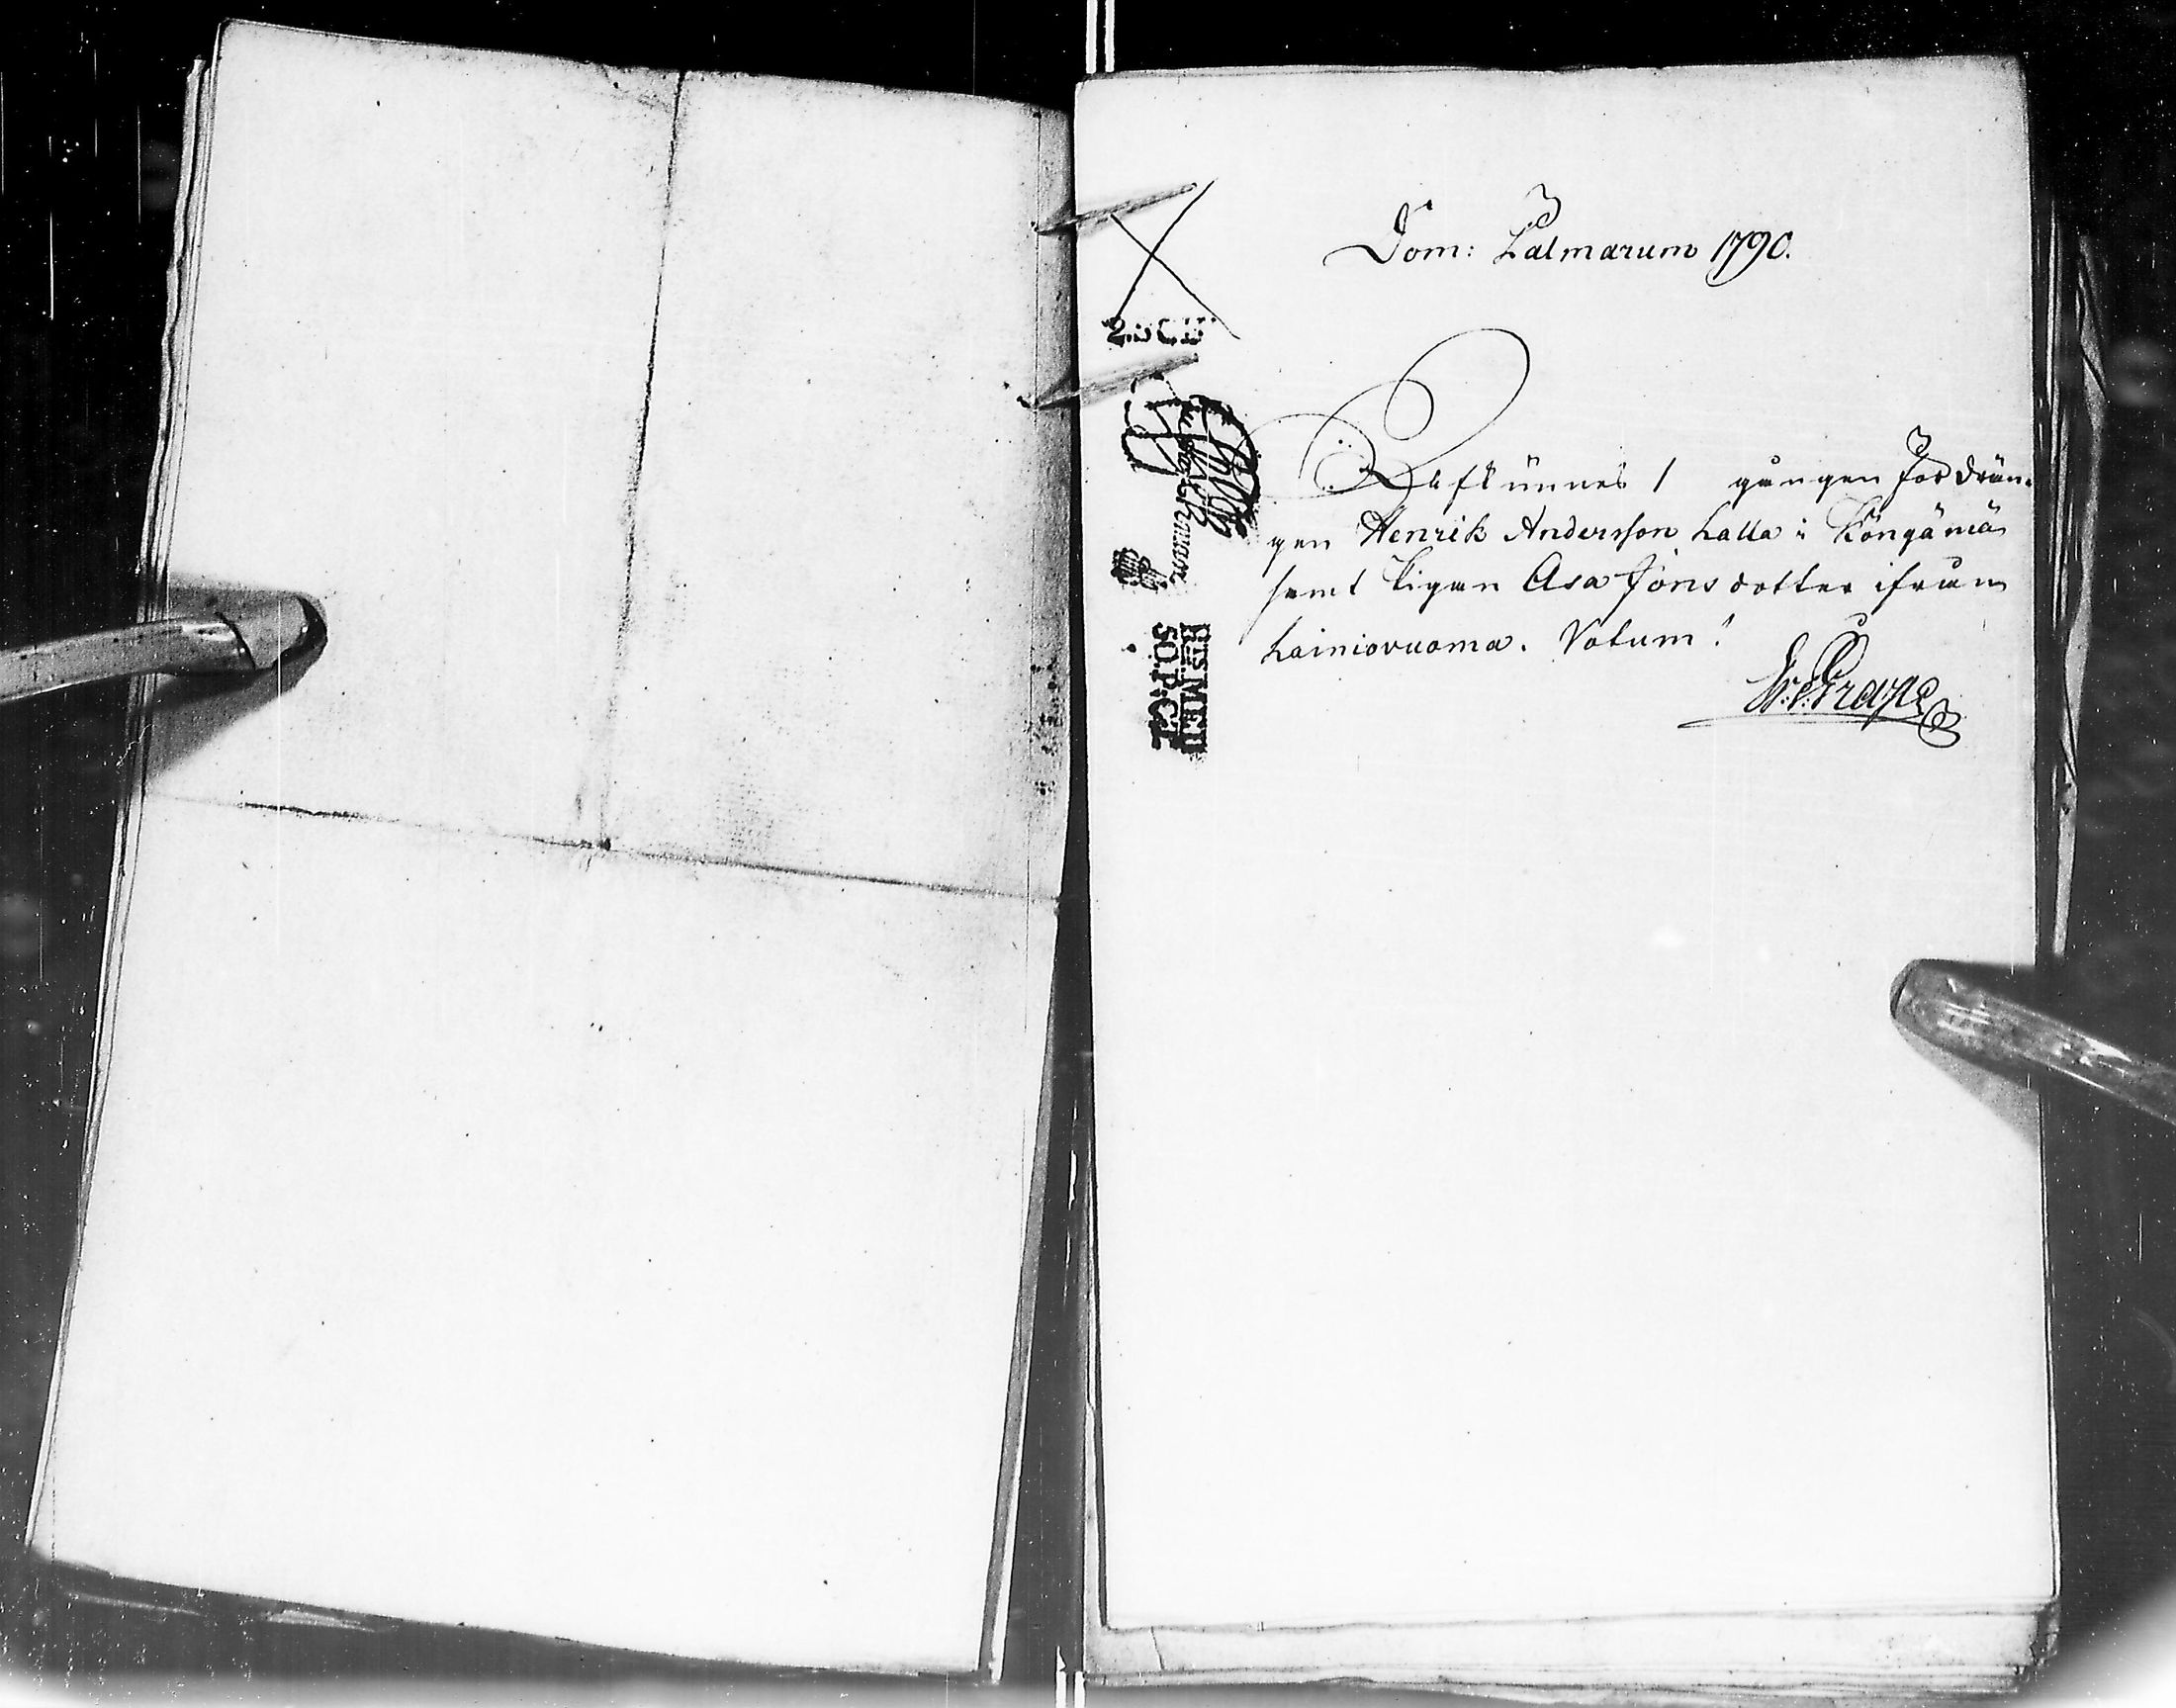 Dom: Palmarum 1790.
Afkunnes 1 gången för drän-
gen Henrik Andersson Lalla i Köngämä
samt Pigan Asa Jöns dotter ifrån
Lainiovuoma. Votum!
Er: Grape